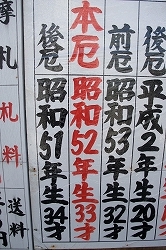 後厄 平成2年生20才
前厄 昭和53年生32才
本厄 昭和52年生33才
後厄 昭和51年生34才
送料
摩札
札料